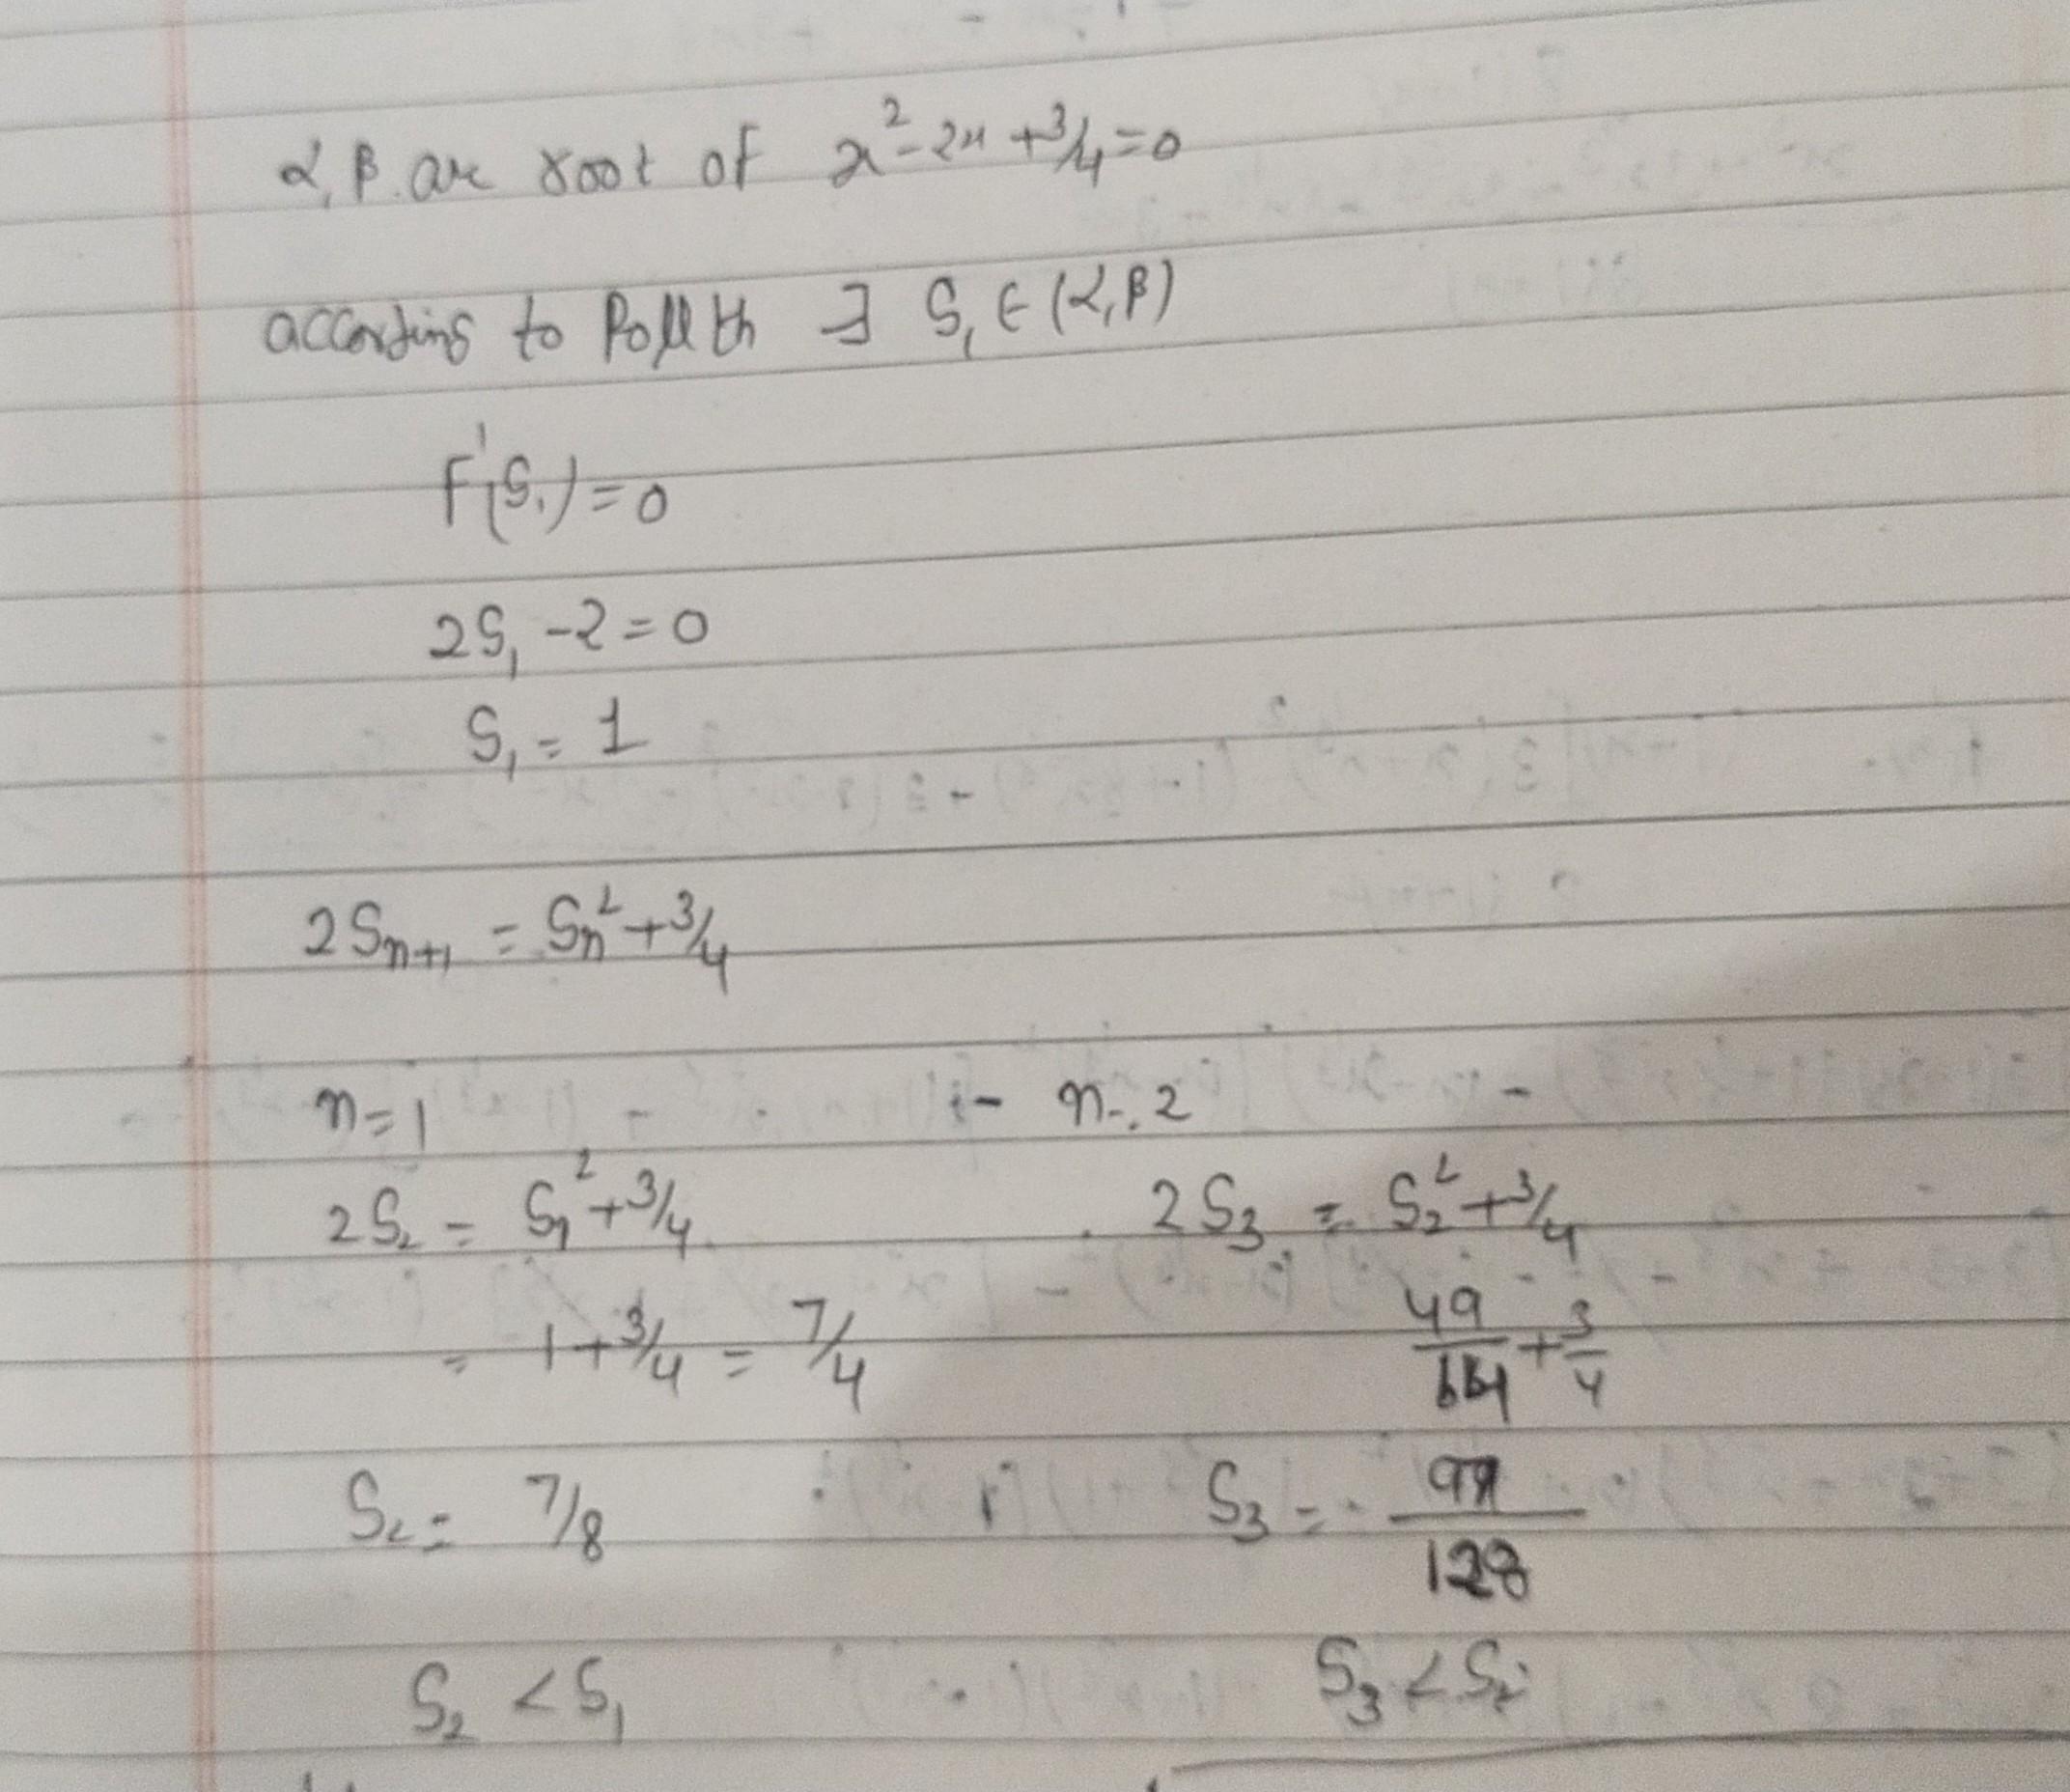 α, β are root of x²-2x+3/4=0
according to Roll th ∃ S₁ ∈ (α,β)
F'(S₁)=0
2S₁-2=0
S₁=1
2Sₙ₊₁ = Sₙ²+3/4
n=1
2S₂ = S₁²+3/4
= 1+3/4 = 7/4
S₂ = 7/8
S₂ < S₁
n=2
2S₃ = S₂²+3/4
49/64+3/4
S₃ = 97/128
S₃ < S₂